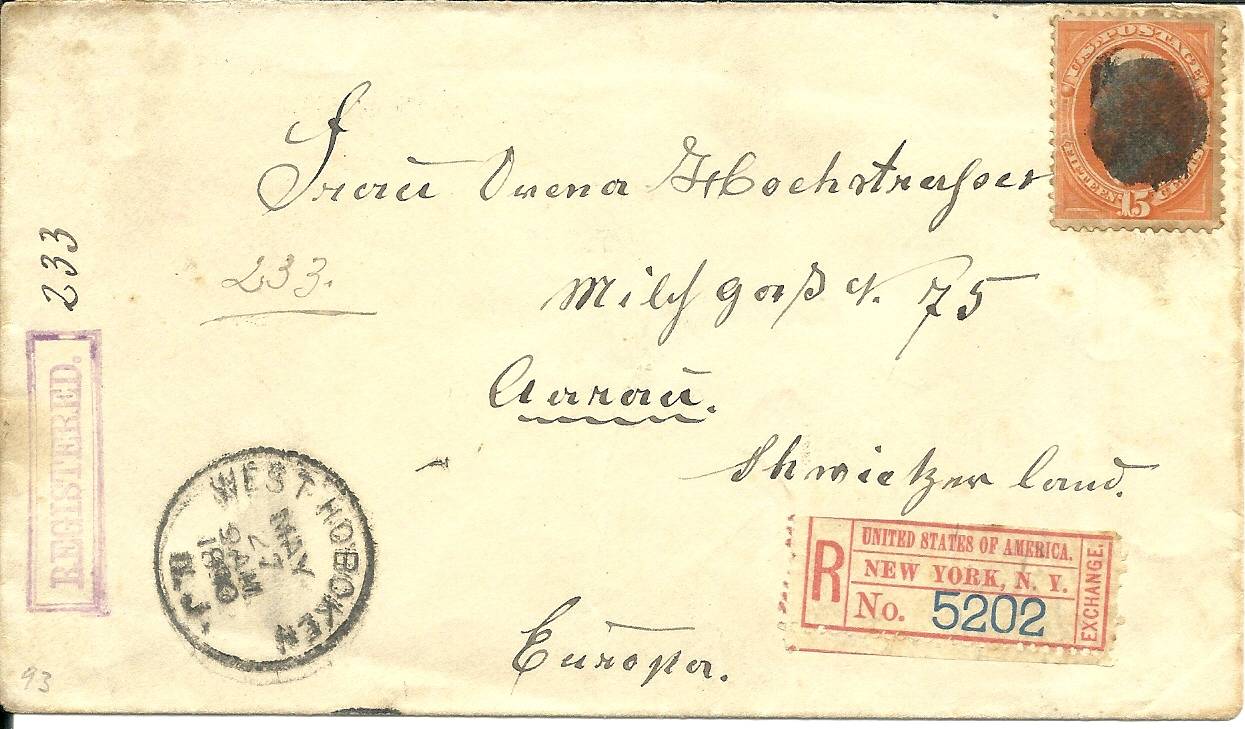 U.S. POSTAGE
FIFTEEN CENTS
15
Frau Hochstrasser
233
233.
Milchgaß N. 75
Aarau.
Shwietzerland.
Europa.
REGISTERED.
WEST HOBOKEN
N.J.
MAY
27
9 AM
R
UNITED STATES OF AMERICA.
NEW YORK, N. Y.
No. 5202
EXCHANGE.
93